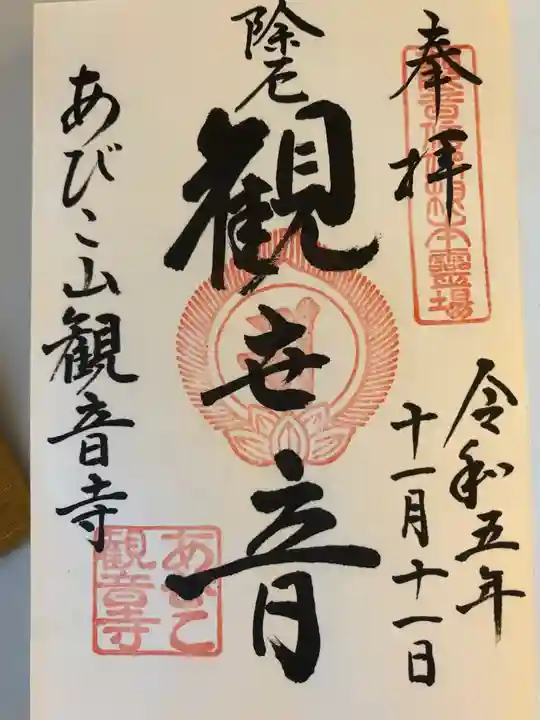 奉拝
令和五年
十一月十一日
除厄
観世音
あびこ山観音寺
あびこ
観音寺